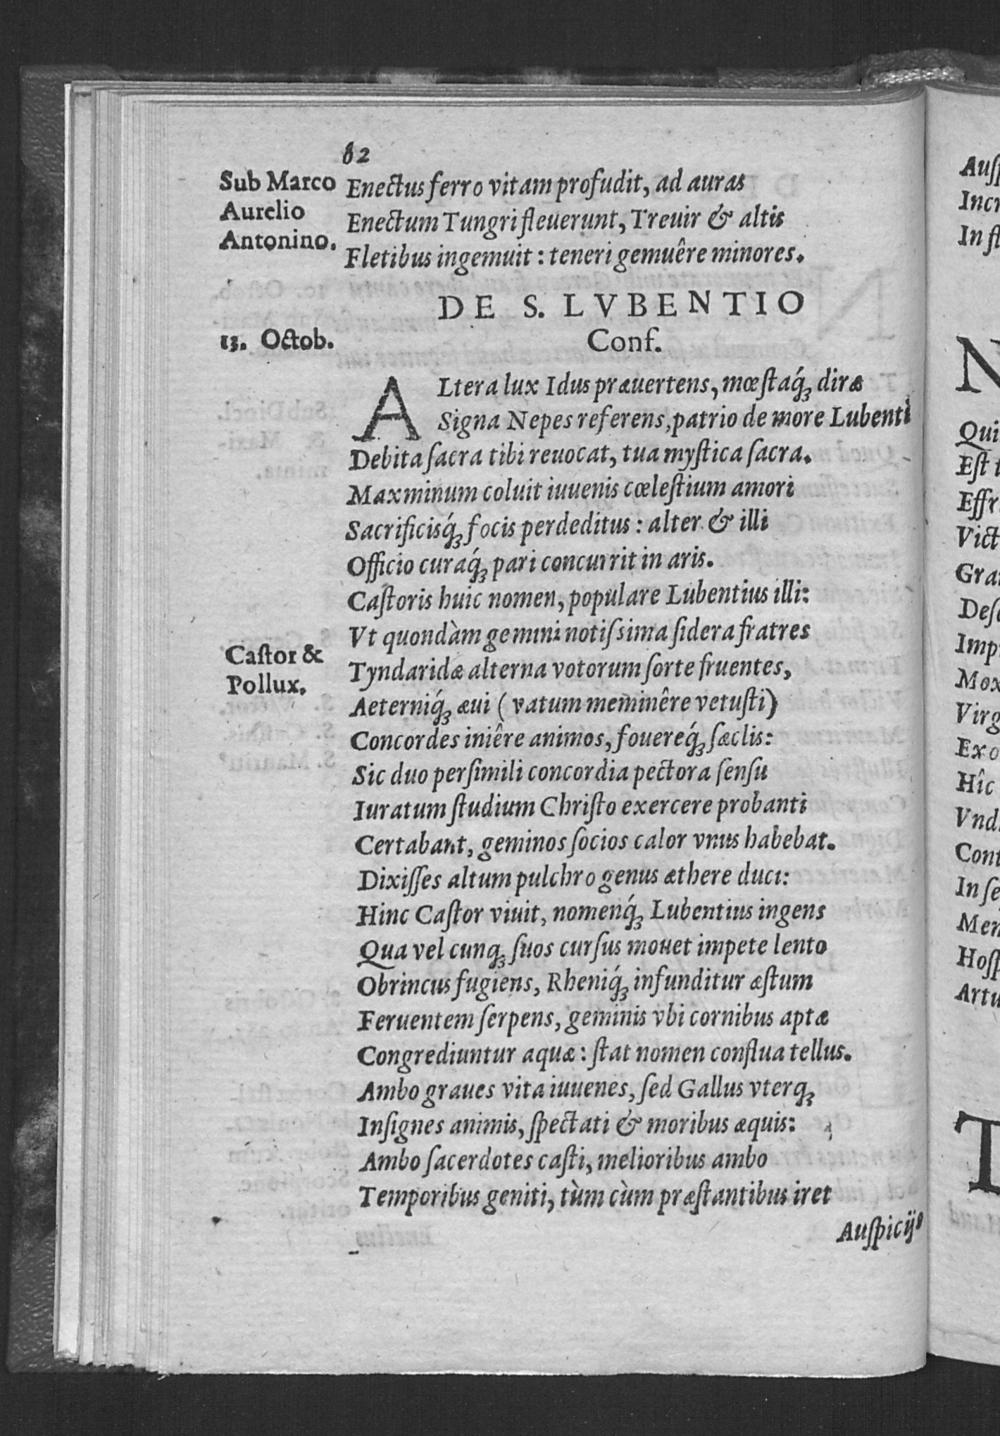 82
Sub Marco
Aurelio
Antonino.
Enectus ferro vitam profudit, ad auras
Enectum Tungri fleuerunt, Treuir & altis
Fletibus ingemuit : teneri gemuêre minores.
DE S. LVBENTIO
Conf.
13. Octob.
ALtera lux Idus præuertens, mœstaq́; diræ
Signa Nepes referens, patrio de more Lubenti
Debita sacra tibi reuocat, tua mystica sacra.
Maxminum coluit iuuenis cœlestium amori
Sacrificisq́; focis perdeditus : alter & illi
Officio curaq́; pari concurrit in aris.
Castoris huic nomen, populare Lubentius illi:
Vt quondàm gemini notissima sidera fratres
Castor &
Pollux.
Tyndaridæ alterna votorum sorte fruentes,
Aeterniq́; æui ( vatum meminêre vetusti)
Concordes iniêre animos, fouereq́; sæclis:
Sic duo persimili concordia pectora sensu
Iuratum studium Christo exercere probanti
Certabant, geminos socios calor vnus habebat.
Dixisses altum pulchro genus æthere duci:
Hinc Castor viuit, nomenq́; Lubentius ingens
Qua vel cunq; suos cursus mouet impete lento
Obrincus fugiens, Rheniq́; infunditur æstum
Feruentem serpens, geminis vbi cornibus aptæ
Congrediuntur aquæ : stat nomen conflua tellus.
Ambo graues vita iuuenes, sed Gallus vterq;
Insignes animis, spectati & moribus æquis:
Ambo sacerdotes casti, melioribus ambo
Temporibus geniti, tùm cùm præstantibus iret
Auspicijs
Incr
In fl
N
Qui
Est
Effr
Vict
Gra
Desc
Imp
Mox
Virg
Exo
Hîc
Vnd
Cont
In se
Men
Hosp
Artu
T